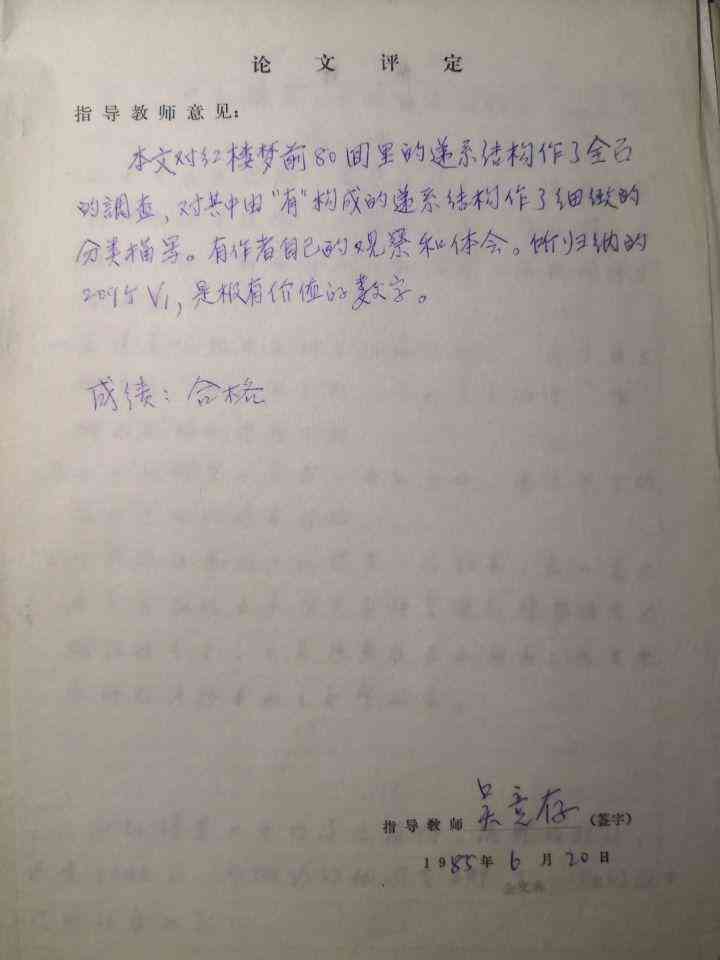 论文评定
指导教师意见：
本文对红楼梦前80回里的递系结构作了全面
的調查，对其中由“有”构成的递系结构作了细緻的
分类描写。有作者自己的观察和体会。所归纳的
209个V1，是极有价值的数字。
成绩：合格
指导教师 吴竞存 (签字)
1985年6月20日